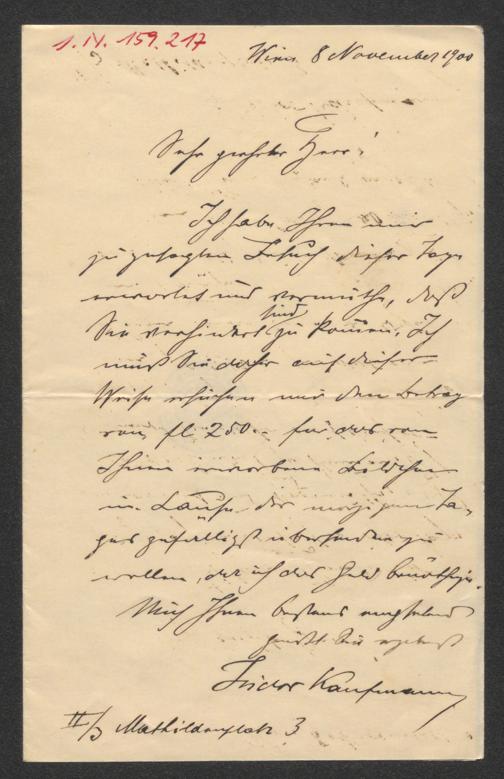 I.N. 159.217
Wien 8 November 1900
Sehr geehrter Herr!
Ich habe Ihren mir
zugesagten Besuch dieser Tage
erwartet und vermuthe, daß
Sie verhindert sind zu kommen. Ich
muß Sie daher auf diese
Weise ersuchen mir den Betrag
von fl 250.- für das von
Ihnen erworbene Bildchen
im Laufe des morgigen Ta-
ges gefälligst übersenden zu
wollen, da ich das Geld benöthige.
Mich Ihnen bestens empfehlend
grüßt Sie ergebenst
Isidor Kaufmann
II/3 Mathildenplatz 3